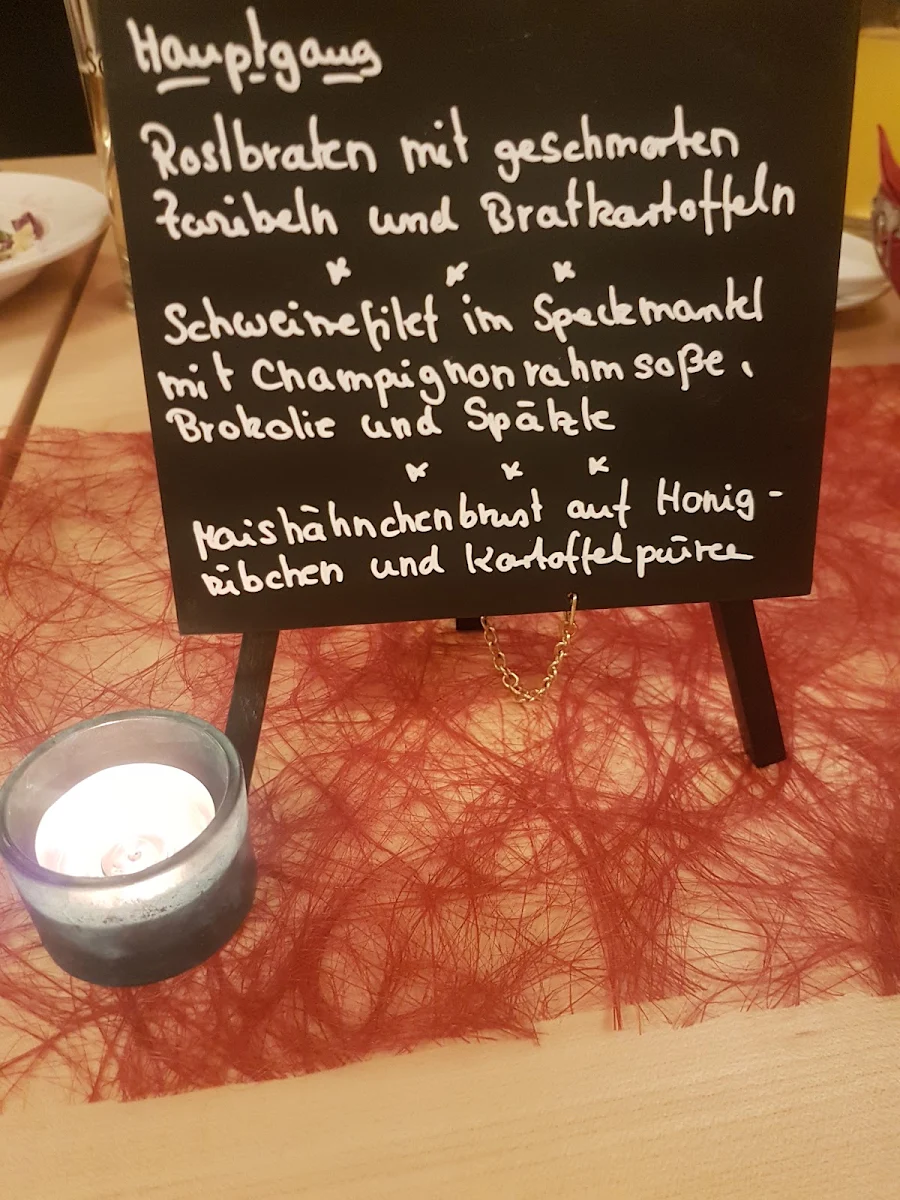 Hauptgang
Rostbraten mit geschmorten
Zwibeln und Bratkartoffeln
* * *
Schweinefilet im Speckmantel
mit Champignonrahmsoße,
Brokolie und Spätzle
* * *
Maishähnchenbrust auf Honig-
rübchen und Kartoffelpüree